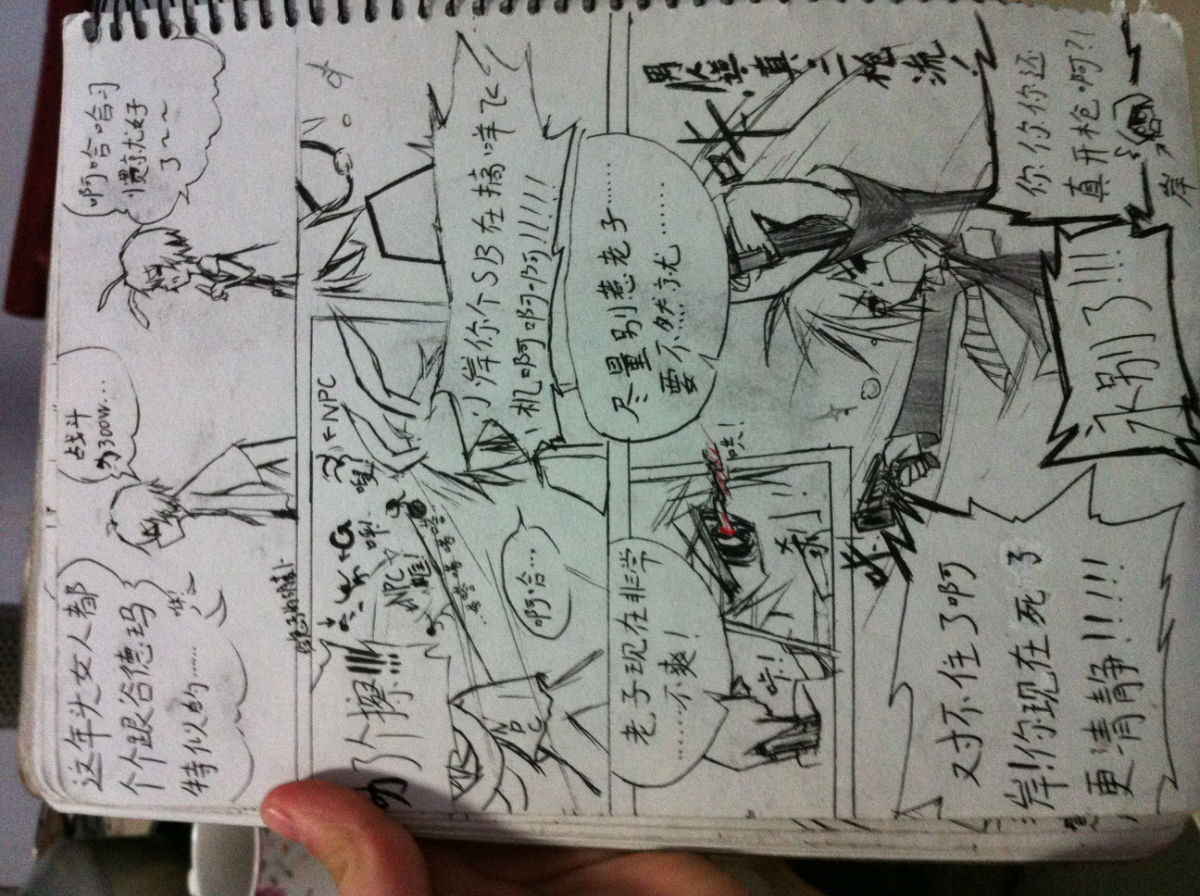 这年头女人都
个个跟谷德玛
特似的……
战斗
力300w…
啊哈哈习
惯就好
了~~
了个擦!!!!
NPC
←NPC
啊哈…
小岸你个SB在搞咩飞
机啊啊啊!!!!!
老子现在非常
……不爽!
尽量别惹老子………
要不然就……
杀!
咔!
哄!
男人婆·真·二枪流!
对不住了啊
岸!你现在死了
更清静!!!!!
永别了!!!
你你你还
真开枪啊?!
岸